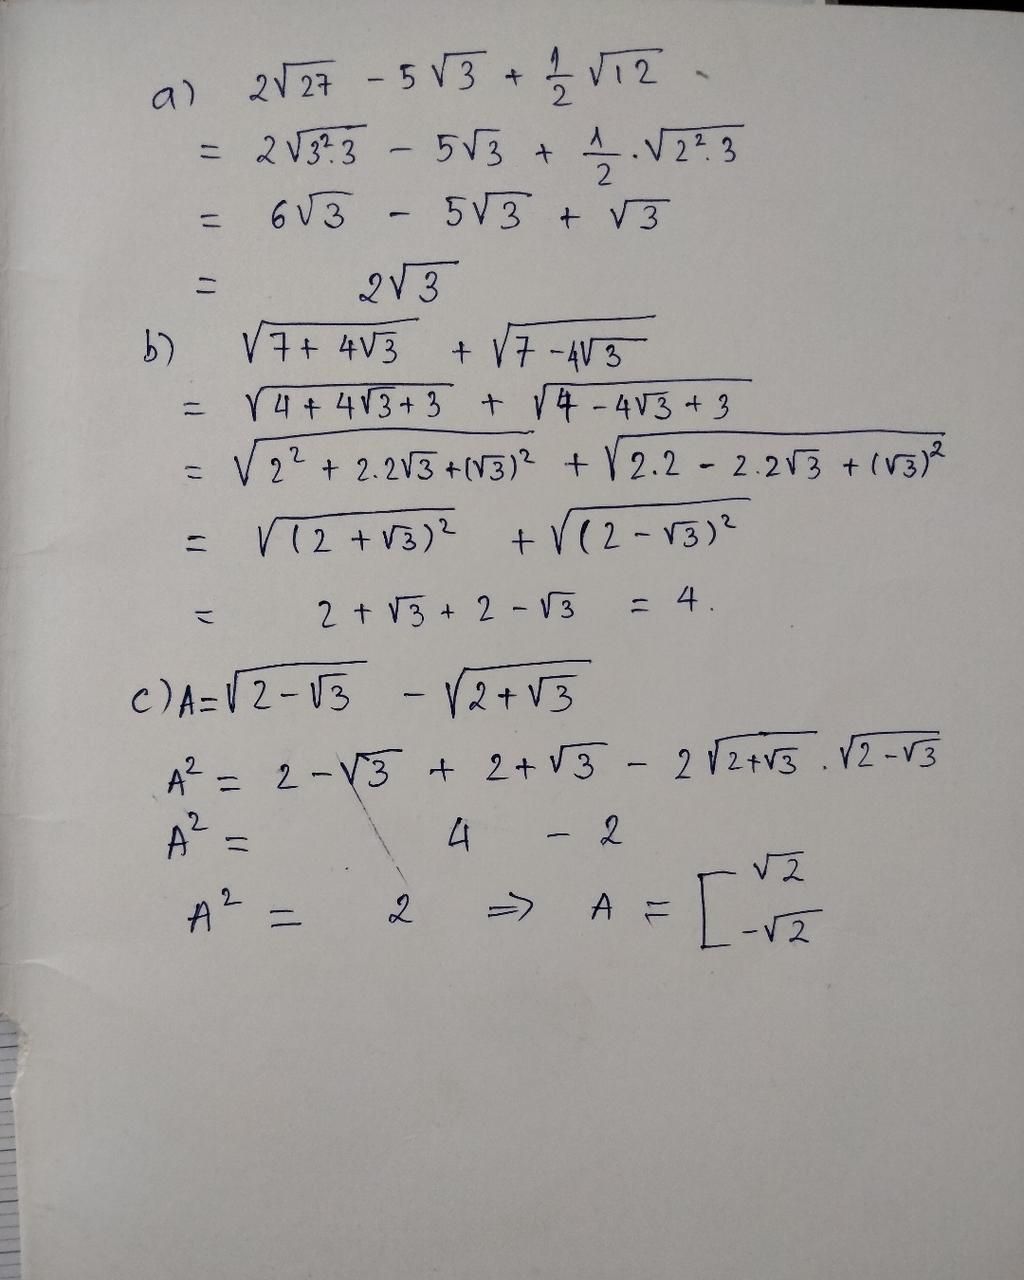 a) 2√27 - 5√3 + 1/2 √12
= 2√3².3 - 5√3 + 1/2 . √2².3
= 6√3 - 5√3 + √3
= 2√3
b) √7 + 4√3 + √7 - 4√3
= √4 + 4√3 + 3 + √4 - 4√3 + 3
= √2² + 2.2√3 + (√3)² + √2.2 - 2.2√3 + (√3)²
= √(2 + √3)² + √(2 - √3)²
= 2 + √3 + 2 - √3 = 4.
c) A = √2 - √3 - √2 + √3
A² = 2 - √3 + 2 + √3 - 2√2+√3 . √2-√3
A² = 4 - 2
A² = 2 => A = [ √2
-√2